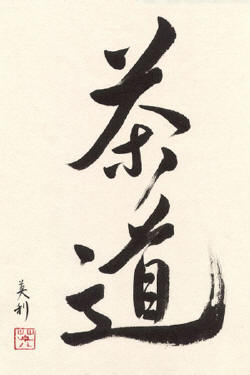 茶道
美利